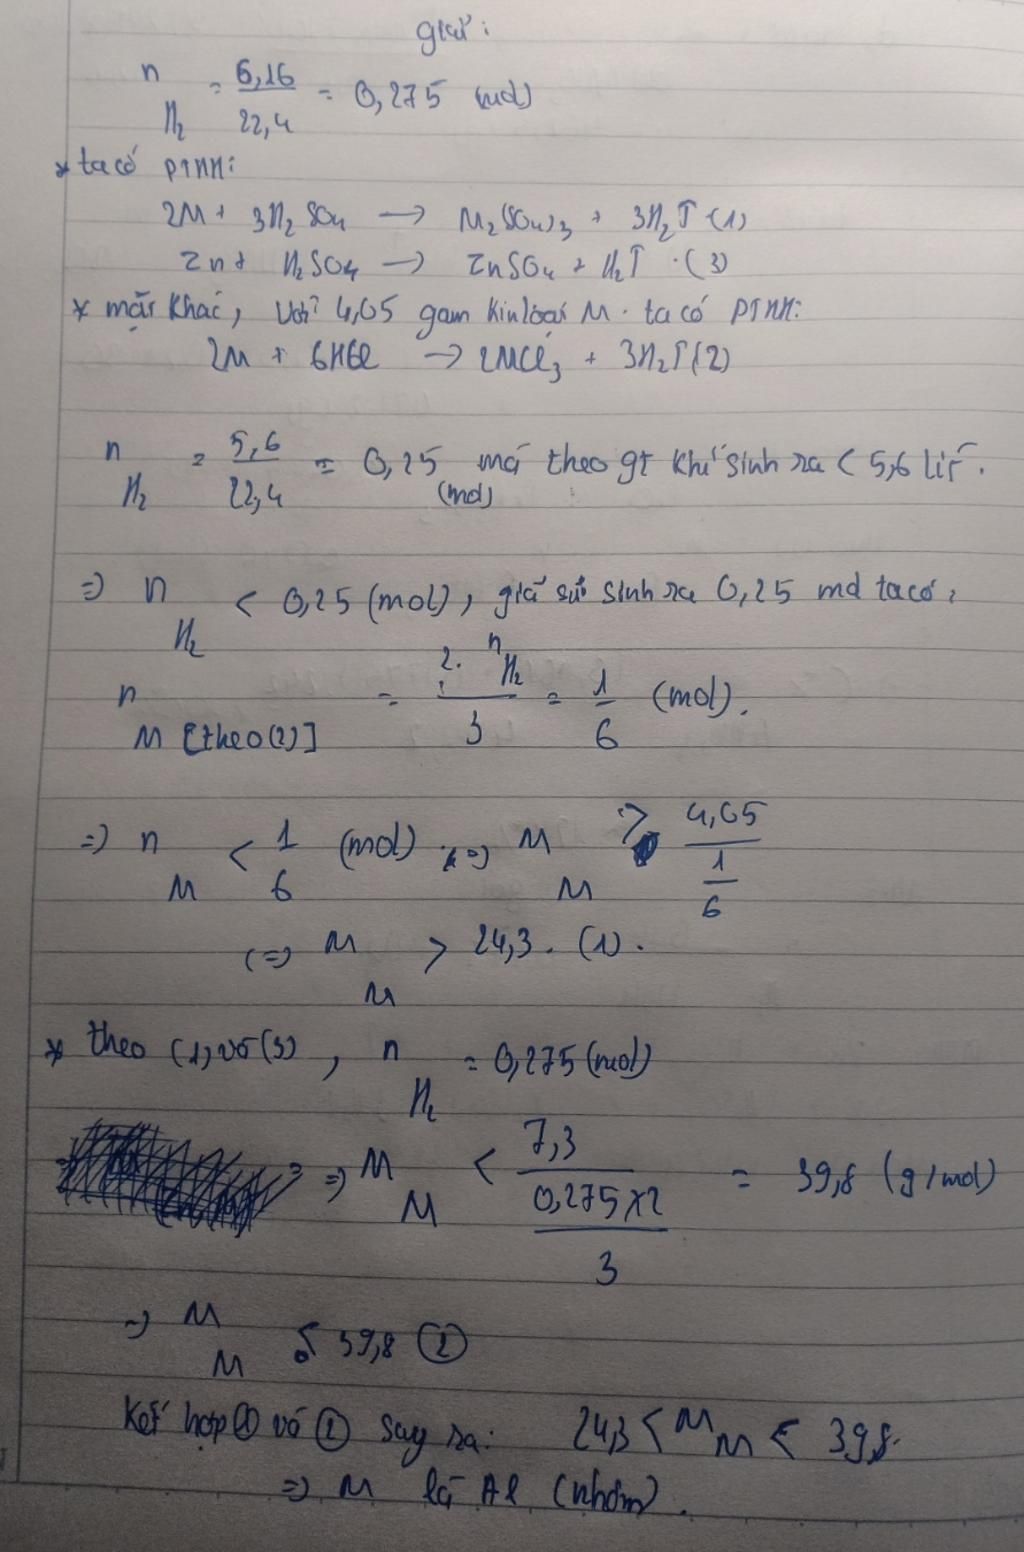 giải:
n H₂ = 6,16 / 22,4 = 0,275 (mol)
* ta có PTHH:
2M + 3H₂SO₄ → M₂(SO₄)₃ + 3H₂↑ (1)
Zn + H₂SO₄ → ZnSO₄ + H₂↑ (3)
* mặt khác, với 4,05 gam kim loại M. ta có PTHH:
2M + 6HCl → 2MCl₃ + 3H₂↑ (2)
n H₂ = 5,6 / 22,4 = 0,25 (mol) mà theo gt khí sinh ra < 5,6 lít.
=> n H₂ < 0,25 (mol), giả sử sinh ra 0,25 mol ta có:
n M [theo(2)] = 2. n H₂ / 3 = 1/6 (mol).
=> n M < 1/6 (mol) <=> M M > 4,05 / (1/6)
<=> M M > 24,3. (1).
* theo (1) và (3), n H₂ = 0,275 (mol)
=> M M < 7,3 / (0,275x2 / 3) = 39,8 (g/mol)
=> M M < 39,8 ②
Kết hợp ① và ② say ra: 24,3 < M M < 39,8.
=> M là Al (nhôm).